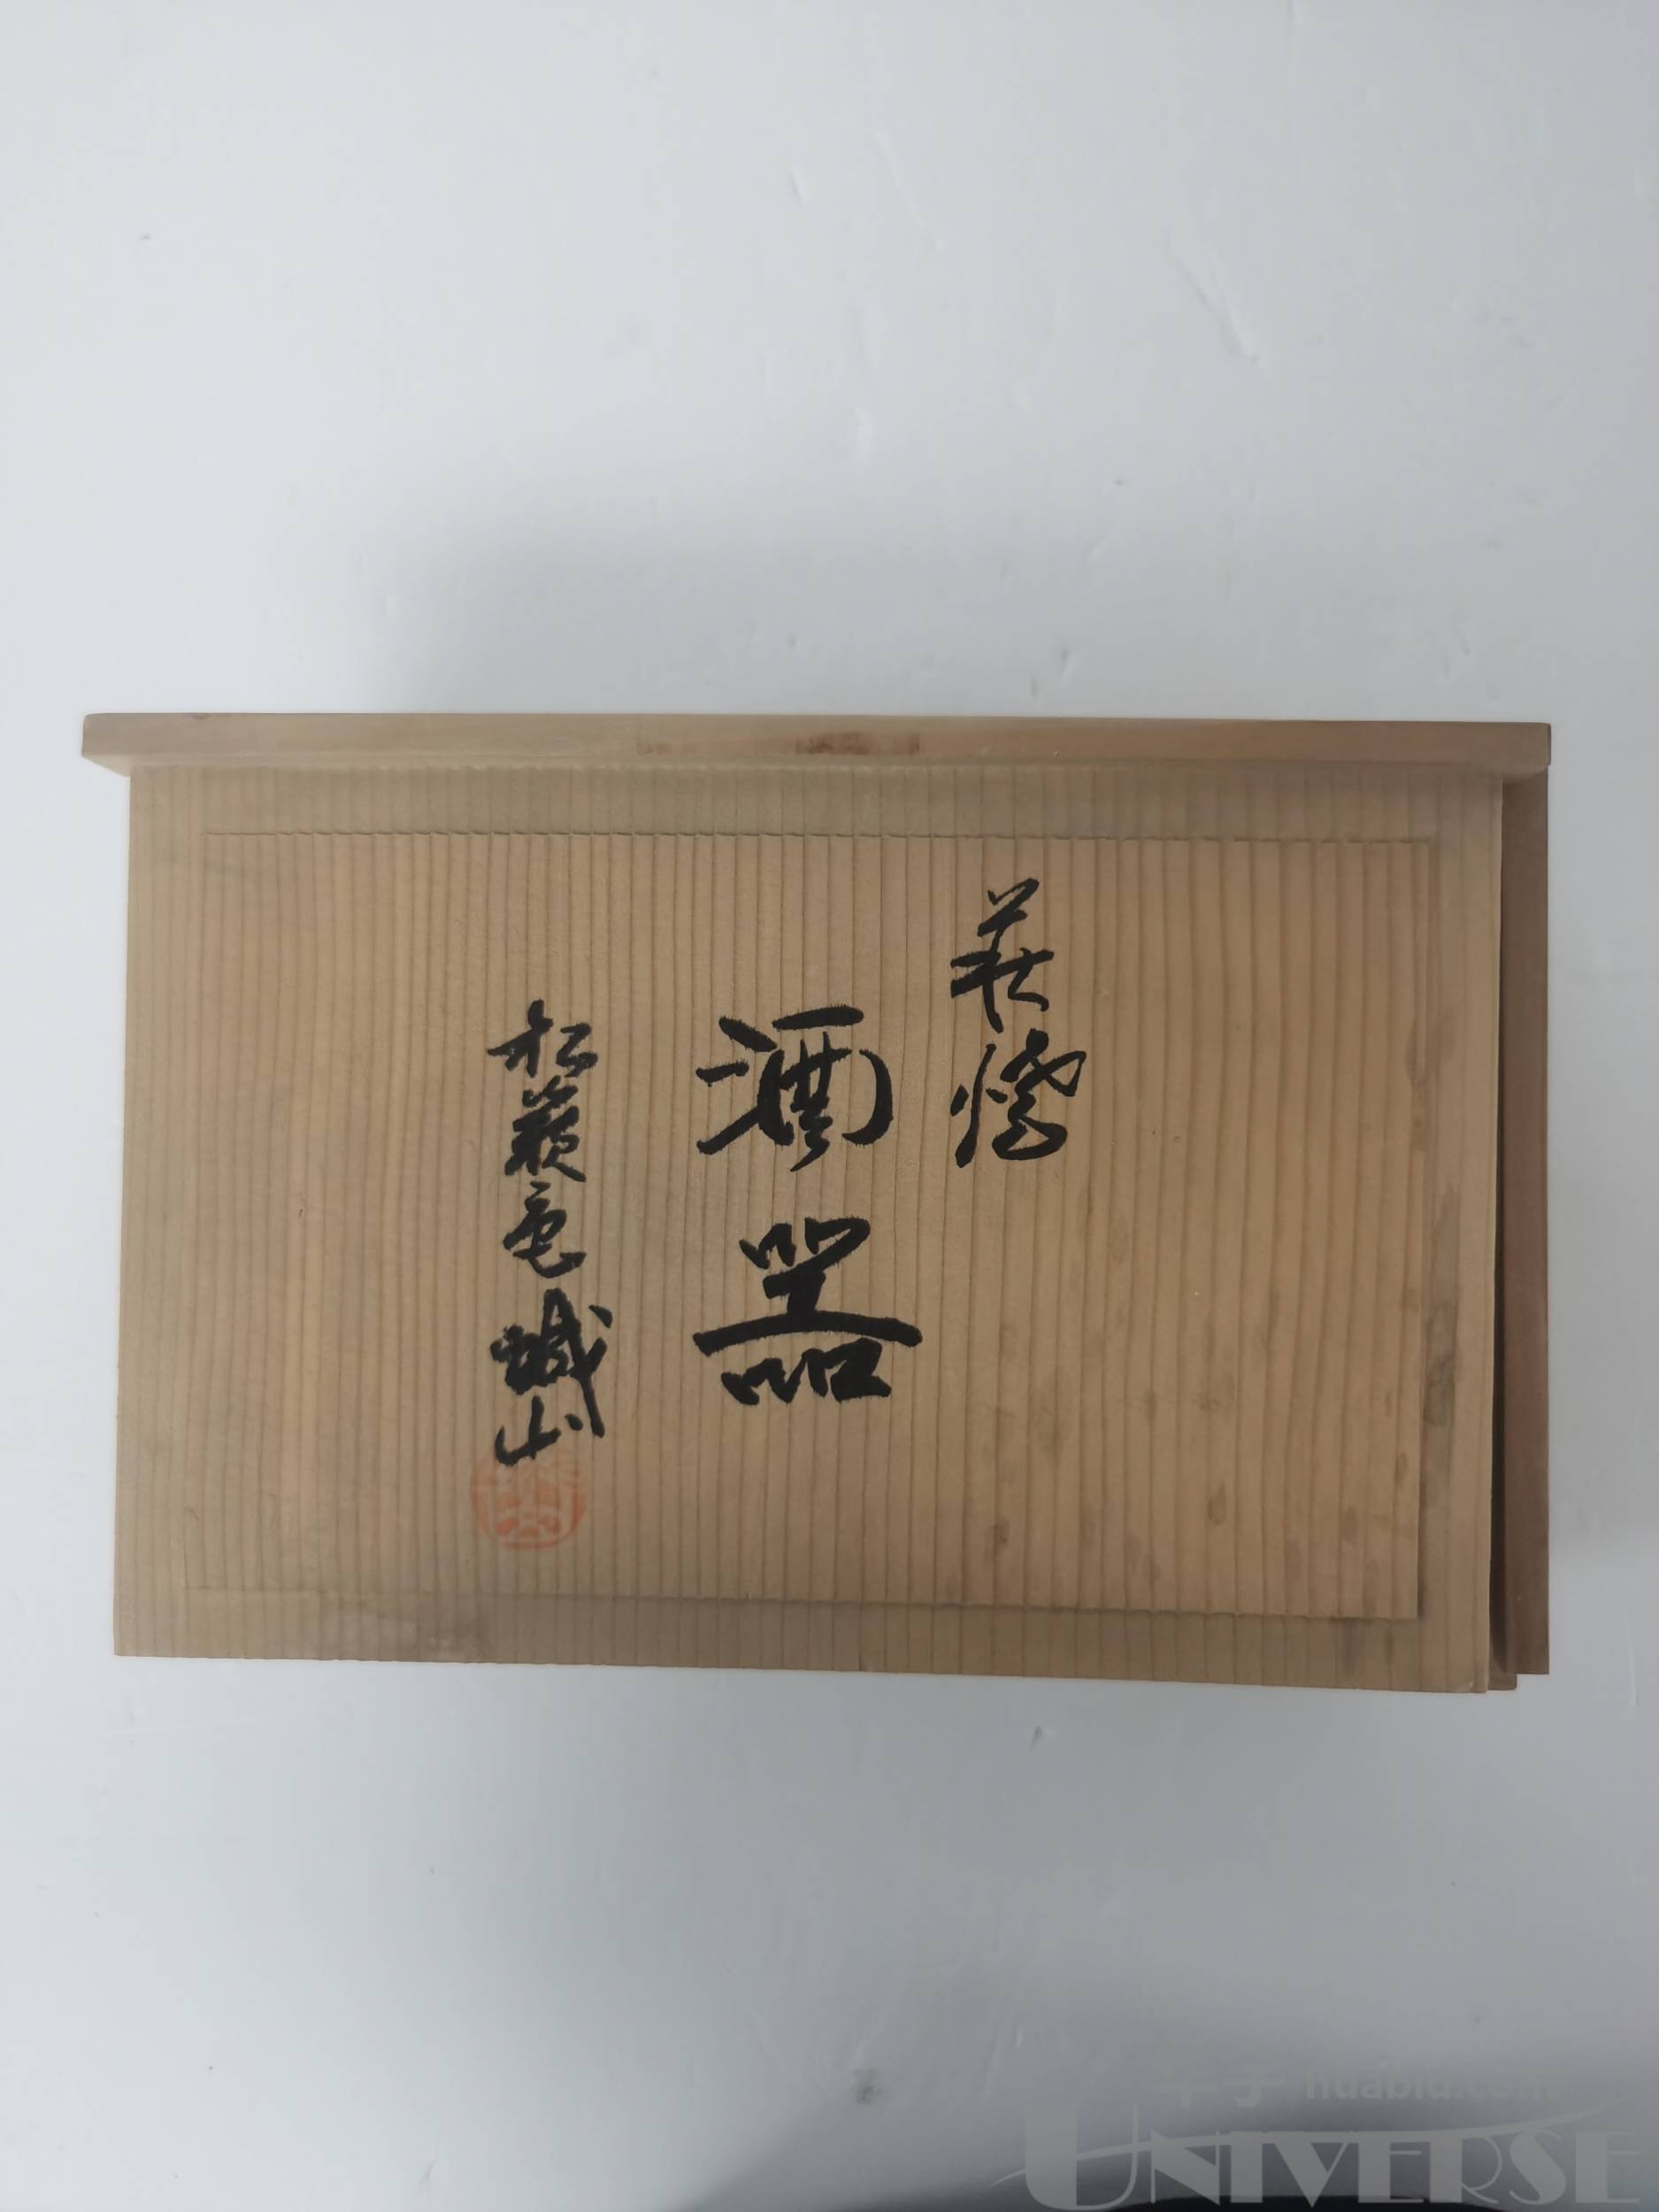 萩焼
酒器
松籟庵 城山
huabid.com
UNIVERSE